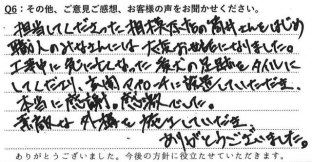 Q6：その他、ご意見ご感想、お客様の声をお聞かせください。
担当してくださった相模原店の筒井さんをはじめ
職人のみなさんには大変お世話になりました。
工事中に亡くなってしまった愛犬の足跡をタイルに
してくださり、玄関アプローチに設置していただき
本当に感謝。感激でした。
素敵な外構を施工していただき
ありがとうございました。
ありがとうございました。今後の方針に役立たせていただきます。